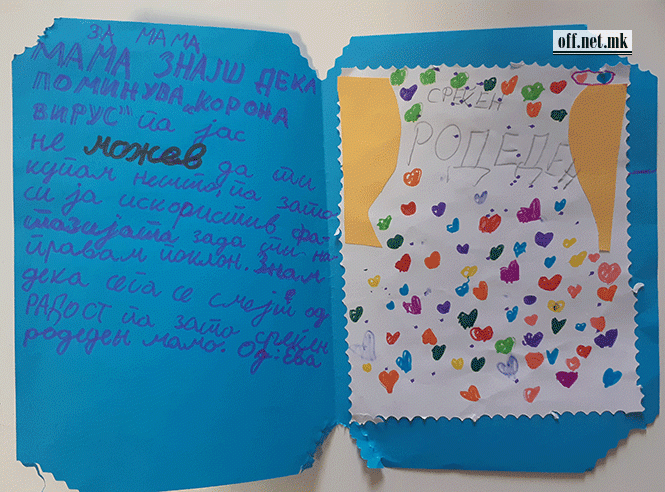 ЗА МАМА
МАМА ЗНАЈШ ДЕКА
ПОМИНУВА „КОРОНА
ВИРУС" па јас
не можев да ти
купам нешто, па зато
си ја искористив фа-
тазијата зада ти на-
правам поклон. Знам
дека сега се смејш од
РАДОСТ па зато среќен
родеден мамо. Од: Ева
СРЕЌЕН
РОДЕДЕН
off.net.mk